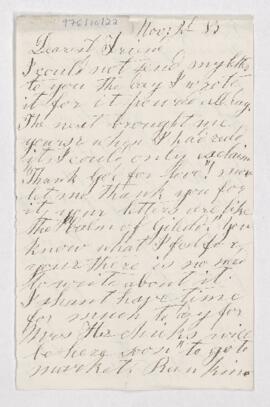 Nov: 1st 83
Dearest Friend
I could not send my letter
to you the day I wrote
it for it poured all day.
The next brought me
yours & when I had read
it I could only exclaim
"Thank God for love"! now
let me thank you for
it. Your letters are like
the "balm of Gilead". You
know what I feel for
you & there is no need
to write about it.
I shant have time
for much to day for
Mrs Hicks will
be here soon to go to
market. Rankins